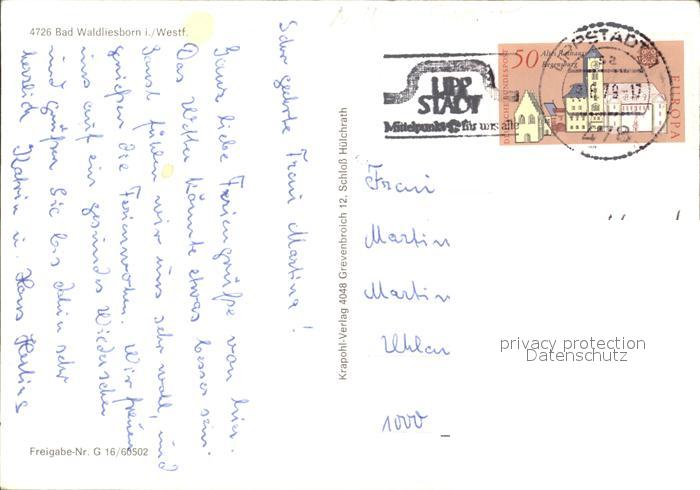 4726 Bad Waldliesborn i./Westf.
Sehr geehrte Frau Martina!
Ganz liebe Feriengrüße von hier.
Das Wetter könnte etwas besser sein.
Sonst fühlen wir uns sehr wohl, und
genießen die Ferienwochen. Wir freuen
uns auf ein gesundes Wiedersehen
und grüßen Sie bis dahin sehr
herzlich Katrin u. Hans
Freigabe-Nr. G 16/60502
Krapohl-Verlag 4048 Grevenbroich 12, Schloß Hülchrath
LIPP
STADT
Mittelpunkt für uns alle
LIPPSTADT
478
DEUTSCHE BUNDESPOST
50
Altes Rathaus
Regensburg
EUROPA
Frau
Martin
Martin
1000
privacy protection
Datenschutz